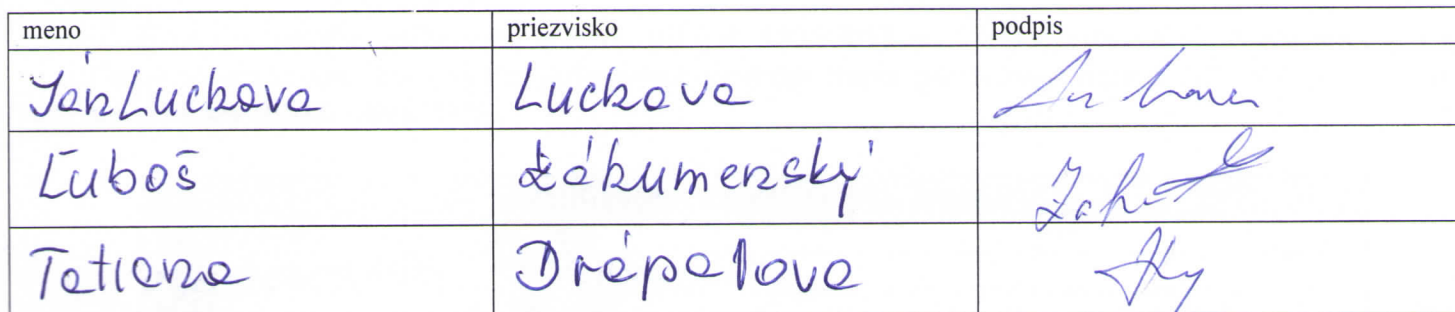 meno priezvisko podpis
JánLuckava Luckava
Ľuboš Zákumenský
Tatiana Drápalova